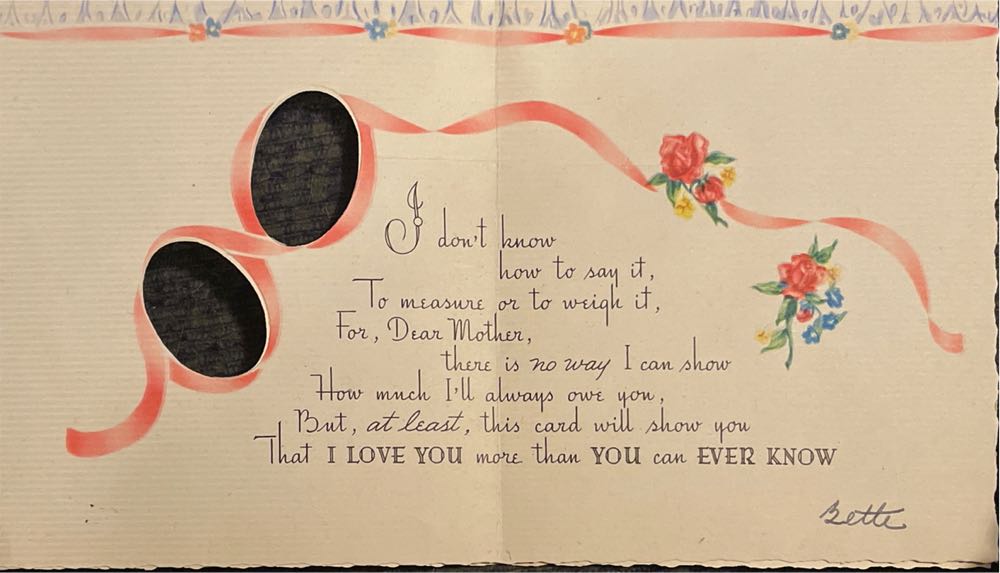 I don't know
how to say it,
To measure or to weigh it,
For, Dear Mother,
there is no way I can show
How much I'll always owe you,
But, at least, this card will show you
That I LOVE YOU more than YOU can EVER KNOW
Bette